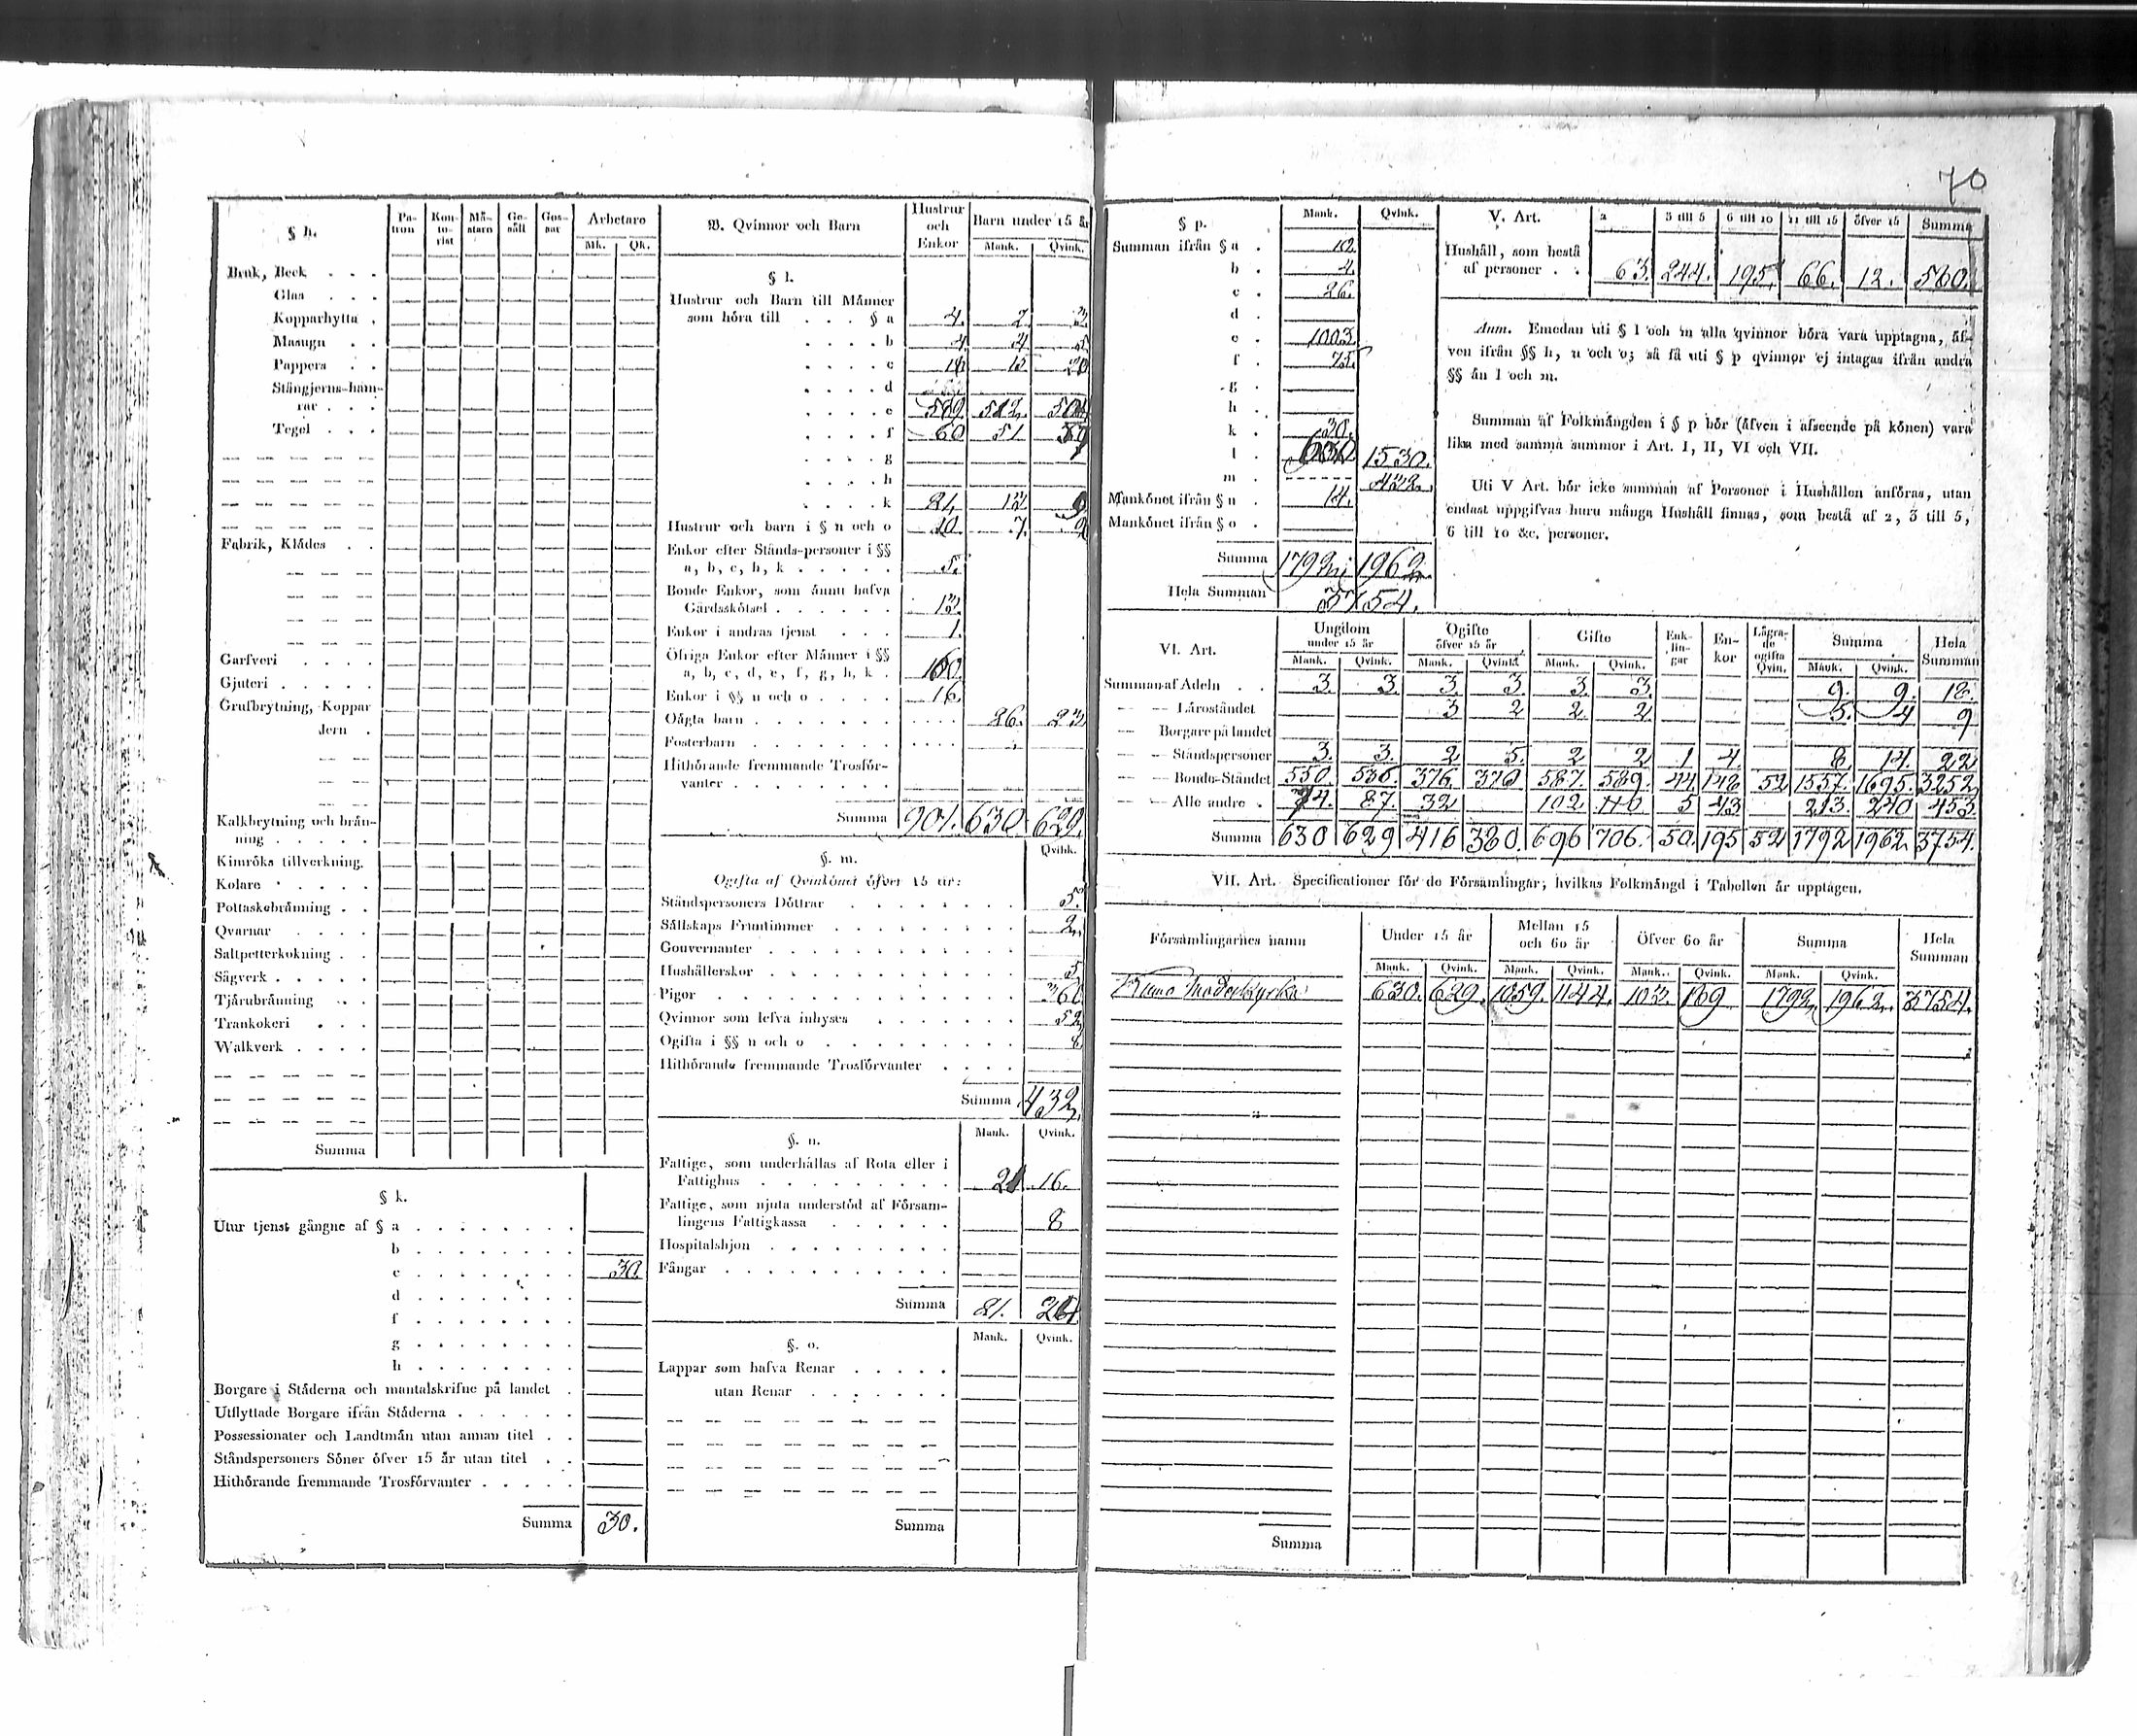 70
§ h.
Pa-tron Kon-to-rist Må-stare Ge-säll Gos-sar Arbetare
Mk. Qk.
Bruk, Beck . . .
Glas . . .
Kopparhytta .
Masugn . .
Pappers . .
Stångjerns-ham-
rar . . .
Tegel . . .
Fabrik, Klädes . .
Garfveri . . . .
Gjuteri . . . . .
Grufbrytning, Koppar
Jern .
Kalkbrytning och brän-
ning . . . . .
Kimröks tillverkning.
Kolare . . . . .
Pottaskebränning . .
Qvarnar . . . .
Saltpetterkokning . .
Sågverk . . . . .
Tjärubränning . .
Trankokeri . . .
Walkverk . . . .
Summa
§ k.
Utur tjenst gångne af § a . . . . . . . .
b . . . . . . . .
c . . . . . . . . 30.
d . . . . . . . .
f . . . . . . . .
g . . . . . . . .
h . . . . . . . .
Borgare i Städerna och mantalskrifne på landet .
Utflyttade Borgare ifrån Städerna . . . . . .
Possessionater och Landtmän utan annan titel . .
Ståndspersoners Söner öfver 15 år utan titel . .
Hithörande fremmande Trosförvanter . . . . .
Summa 30.
B. Qvinnor och Barn
Hustrur och Enkor Barn under 15 år
Mank. Qvink.
§ l.
Hustrur och Barn till Männer
som höra till . . . § a 4. 2. 3.
. . . . b 4
. . . . c 20
. . . . d
. . . . e 512.
. . . . f 60 51.
. . . . g
. . . . h
. . . . k 21. 12 9
Hustrur och barn i § n och o 10 7.
Enkor efter Stånds-personer i §§
a, b, c, h, k . . . . . 5.
Bonde Enkor, som ännu hafva
Gårdsskötsel . . . . . . 13.
Enkor i andras tjenst . . . 1.
Öfriga Enkor efter Männer i §§
a, b, c, d, e, f, g, h, k . 160.
Enkor i §§ n och o . . . . 16.
Oägta barn . . . . . . . . . . . 26. 23
Fosterbarn . . . . . . . . . . .
Hithörande fremmande Trosför-
vanter . . . . . . . .
Summa 901. 630 629.
§. m.
Qvink.
Ogifta af Qvinkönet öfver 15 år:
Ståndspersoners Döttrar . . . . . . . . 5.
Sällskaps Fruntimmer . . . . . . . . . 2.
Gouvernanter . . . . . . . . . . .
Hushållerskor . . . . . . . . . . . 5.
Pigor . . . . . . . . . . . . . 360.
Qvinnor som lefva inhyses . . . . . . . 52
Ogifta i §§ n och o . . . . . . . . . 8.
Hithörande fremmande Trosförvanter . . . .
Summa 432.
§. n.
Mank. Qvink.
Fattige, som underhållas af Rota eller i
Fattighus . . . . . . . . . 21 16.
Fattige, som njuta understöd af Försam-
lingens Fattigkassa . . . . . . 8
Hospitalshjon . . . . . . . . .
Fångar . . . . . . . . . . .
Summa 21. 24
§. o.
Mank. Qvink.
Lappar som hafva Renar . . . . .
utan Renar . . . . . . .
Summa
§ p.
Mank. Qvink.
Summan ifrån § a . 10.
b . 4.
c . 26.
d .
e . 1003.
f . 75.
g .
h .
k . 30.
l . 630 1530.
m . 432.
Mankönet ifrån § n . 14.
Mankönet ifrån § o .
Summa 1792 1962.
Hela Summan 3754.
V. Art.
2 3 till 5 6 till 10 11 till 15 öfver 15 Summa
Hushåll, som bestå
af personer . . 63. 244. 195. 66. 12. 580.
Anm. Emedan uti § l och m alla qvinnor böra vara upptagna, äf-
ven ifrån §§ h, n och o; så få uti § p qvinnor ej intagas ifrån andra
§§ än l och m.
Summan af Folkmängden i § p bör (äfven i afseende på könen) vara
lika med samma summor i Art. I, II, VI och VII.
Uti V Art. bör icke summan af Personer i Hushållen anföras, utan
endast uppgifvas huru många Hushåll finnas, som bestå af 2, 3 till 5,
6 till 10 &c. personer.
VI. Art.
Ungdom under 15 år Ogifte öfver 15 år Gifte Enk-lin-gar En-kor Lägra-de ogifta Qvin. Summa Hela Summan
Mank. Qvink. Mank. Qvink. Mank. Qvink. Mank. Qvink.
Summan af Adeln . . 3. 3. 3. 3 3. 3. 9. 9. 18.
— — Läroståndet 3 2 2. 2 5. 4 9
— Borgare på landet
— — Ståndspersoner 3. 3. 2. 5. 2 2 1 4. 8. 14. 22
— — Bonde-Ståndet 550. 536. 376. 370 587. 589. 44. 148 52 1557. 1695. 3252.
— — Alle andre . 74. 87. 32 102. 110 5 43 213. 240 453.
Summa 630 629 416 380 696 706. 50. 195 52 1792 1962. 3754.
VII. Art. Specificationer för de Församlingar, hvilkas Folkmängd i Tabellen är upptagen.
Församlingarnes namn Under 15 år Mellan 15 och 60 år Öfver 60 år Summa Hela Summan
Mank. Qvink. Mank. Qvink. Mank. Qvink. Mank. Qvink.
Moderkyrka 630. 629. 1059. 1144. 103. 189 1792. 1962. 3754.
Summa